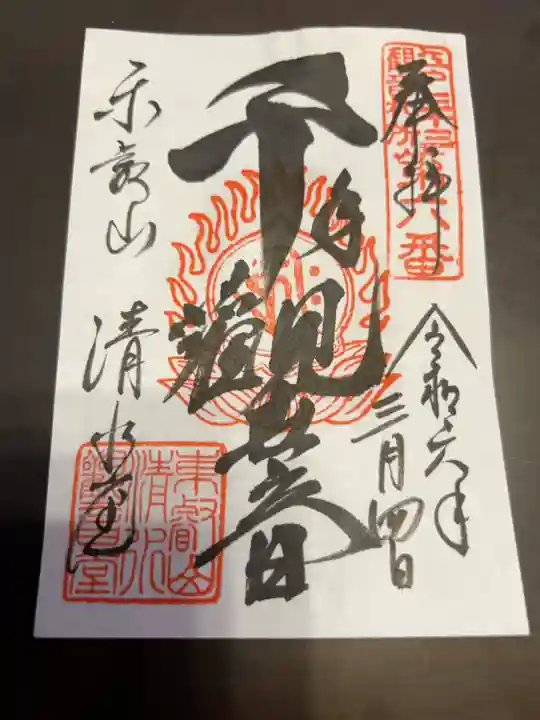 奉拝
令和六年
三月四日
千手觀世音
東叡山
清水堂
第六番
東叡山
清水
觀音堂